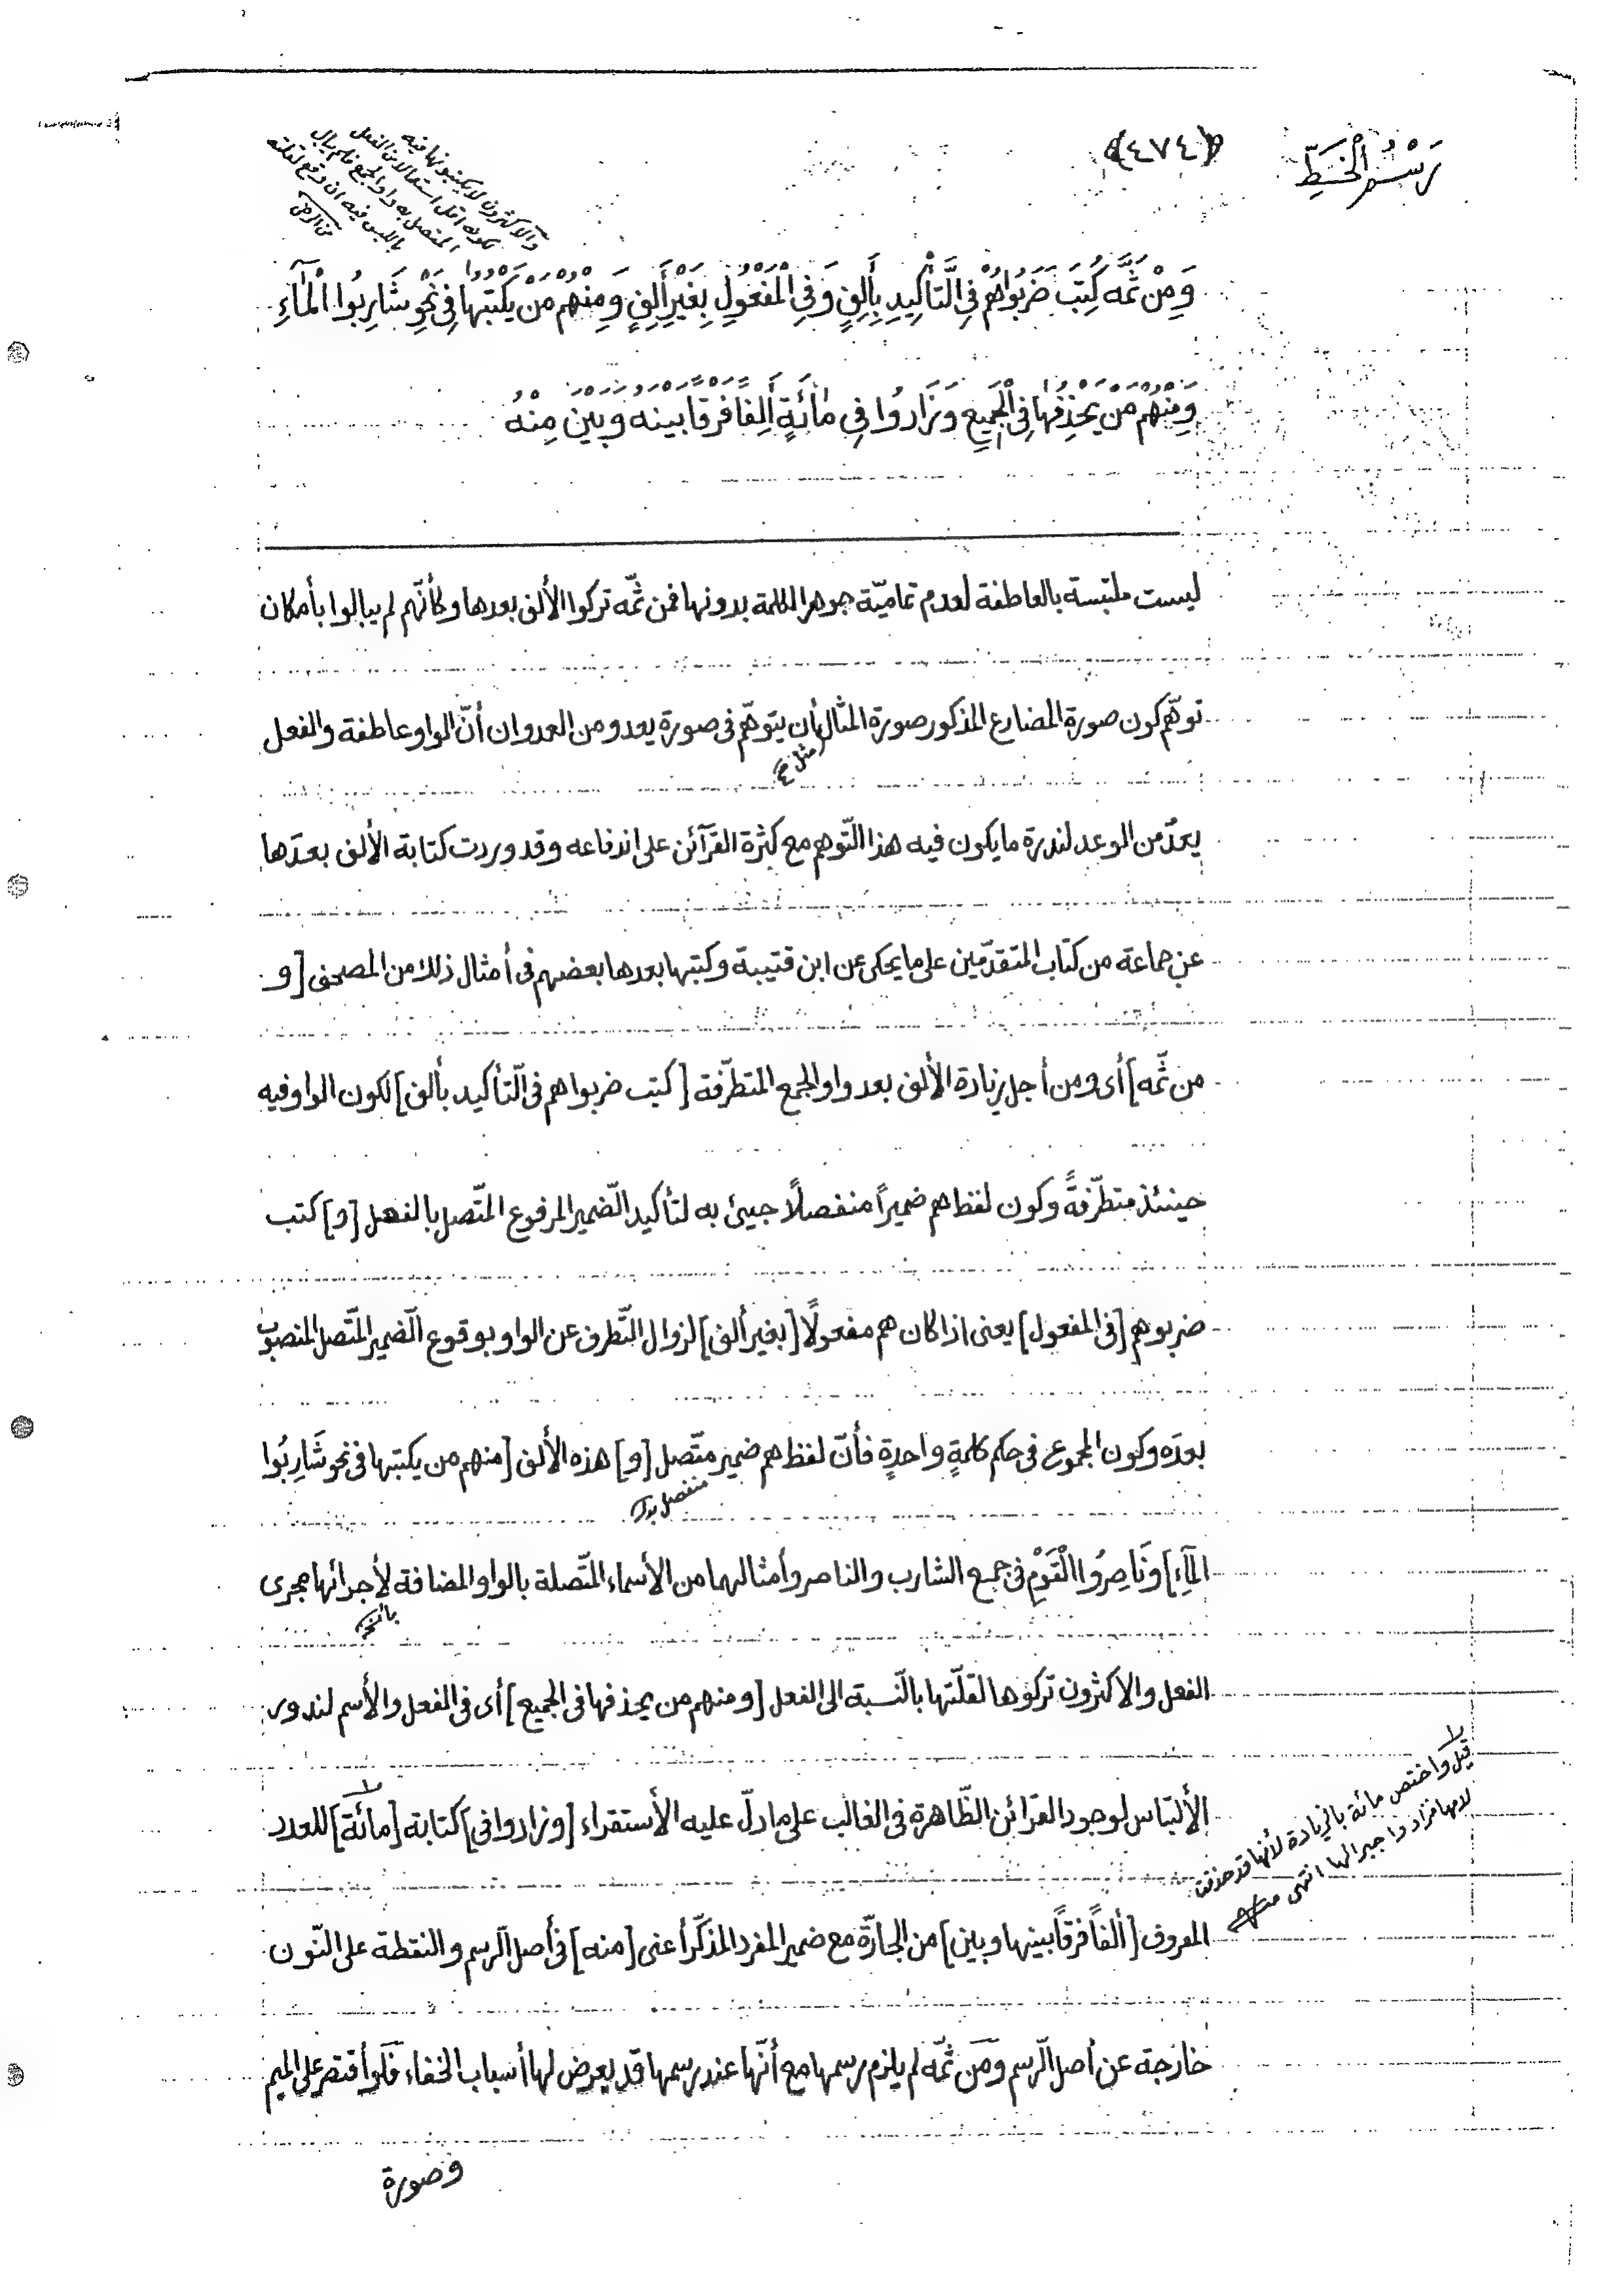 رَسْمُ الْخَطِّ
(٤٧٤)
والأكثرون لا يكتبونها فيه
لكونه اقل استعمالا من الفعل
المتصل به واو الجمع فلم يبال
باللبس فيه ان وقع لقلته
من الرضى
وَمِنْ ثَمَّه كُتِبَ ضَرَبُوا هُمْ فِي التَّأْكِيدِ بِأَلِفٍ وَفِي الْمَفْعُولِ بِغَيْرِ أَلِفٍ وَمِنْهُمْ مَنْ يَكْتُبُهَا فِي نَحْوِ شَارِبُوا الْمَاءِ
وَمِنْهُمْ مَنْ يَحْذِفُهَا فِي الْجَمِيعِ وَزَادُوا فِي مِائَةٍ أَلِفًا فَرْقًا بَيْنَهُ وَبَيْنَ مِنْهُ
ليست ملتبسة بالعاطفة لعدم تماميّة جوهر الكلمة بدونها فمن ثمّه تركوا الألف بعدها وكأنّهم لم يبالوا بأمكان
توهّم كون صورة المضارع المذكور صورة المثال بأن يتوهّم فى صورة يعدو من العدوان أنّ الواو عاطفة والفعل
مثل
يعدّ من الوعد لندرة ما يكون فيه هذا التّوهم مع كثرة القرآئن على اندفاعه وقد وردت كتابة الألف بعدَها
عن جماعة من كتّاب المتقدّمين على ما يحكى عن ابن قتيبة وكتبها بعدها بعضهم فى أمثال ذلك من المصحف [و
من ثمّه] أى ومن أجل زيادة الألف بعد واو الجمع المتطرّفة [كتب ضربوا هم فى التّأكيد بألف] لكون الواو فيه
حينئذ متطرّفةً وكون لفظ هم ضميراً منفصلاً جيئ به لتأكيد الضّمير المرفوع المتّصل بالفعل [و] كتب
ضربوهم [فى المفعول] يعنى اذا كان هم مفعولًا [بغير ألف] لزوال التّطرف عن الواو بوقوع الضّمير المتّصل المنصوب
بعدَه وكون المجموع فى حكم كلمةٍ واحدةٍ فأنّ لفظ هم ضمير متّصل [و] هذه الألف [منهم من يكتبها فى نحو شَارِبُوا
منفصل
المآءِ] ونَاصِرُوا الْقَوْمِ فى جمع الشارب والناصر وأمثالهما من الأسماء المتّصلة بالواو المضافة لأجرائها مجرى
الفعل والاكثرون تركوها لقلّتها بالنّسبة الى الفعل [ومنهم من يحذفها فى الجميع] أى فى الفعل والأسم لندور
الألتباس لوجود القرائن الظّاهرة فى الغالب على ما دلّ عليه الأستقراء [وزادوا فى] كتابة [مائة] للعدد
قيل واختص مائة بالزيادة لأنها قد حذفت
لامها فزادوا جبرا لها انتهى منه
المعروف [ألفاً فرقاً بينها وبين] من الجارّة مع ضمير المفرد المذكّر أعنى [منه] فى أصل الرسم والنقطة على النّون
خارجة عن أصل الرّسم ومن ثمّه لم يلزم رسمها مع أنّها عند رسمها قد يعرض لها أسباب الخفاء فلو أقتصر على الميم
وصورة